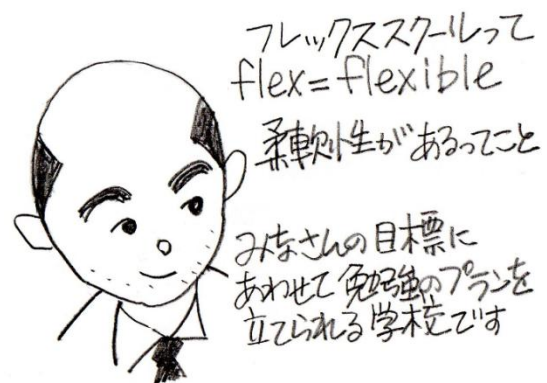 フレックススクールって
flex=flexible
柔軟性があるってこと
みなさんの目標に
あわせて勉強のプランを
立てられる学校です